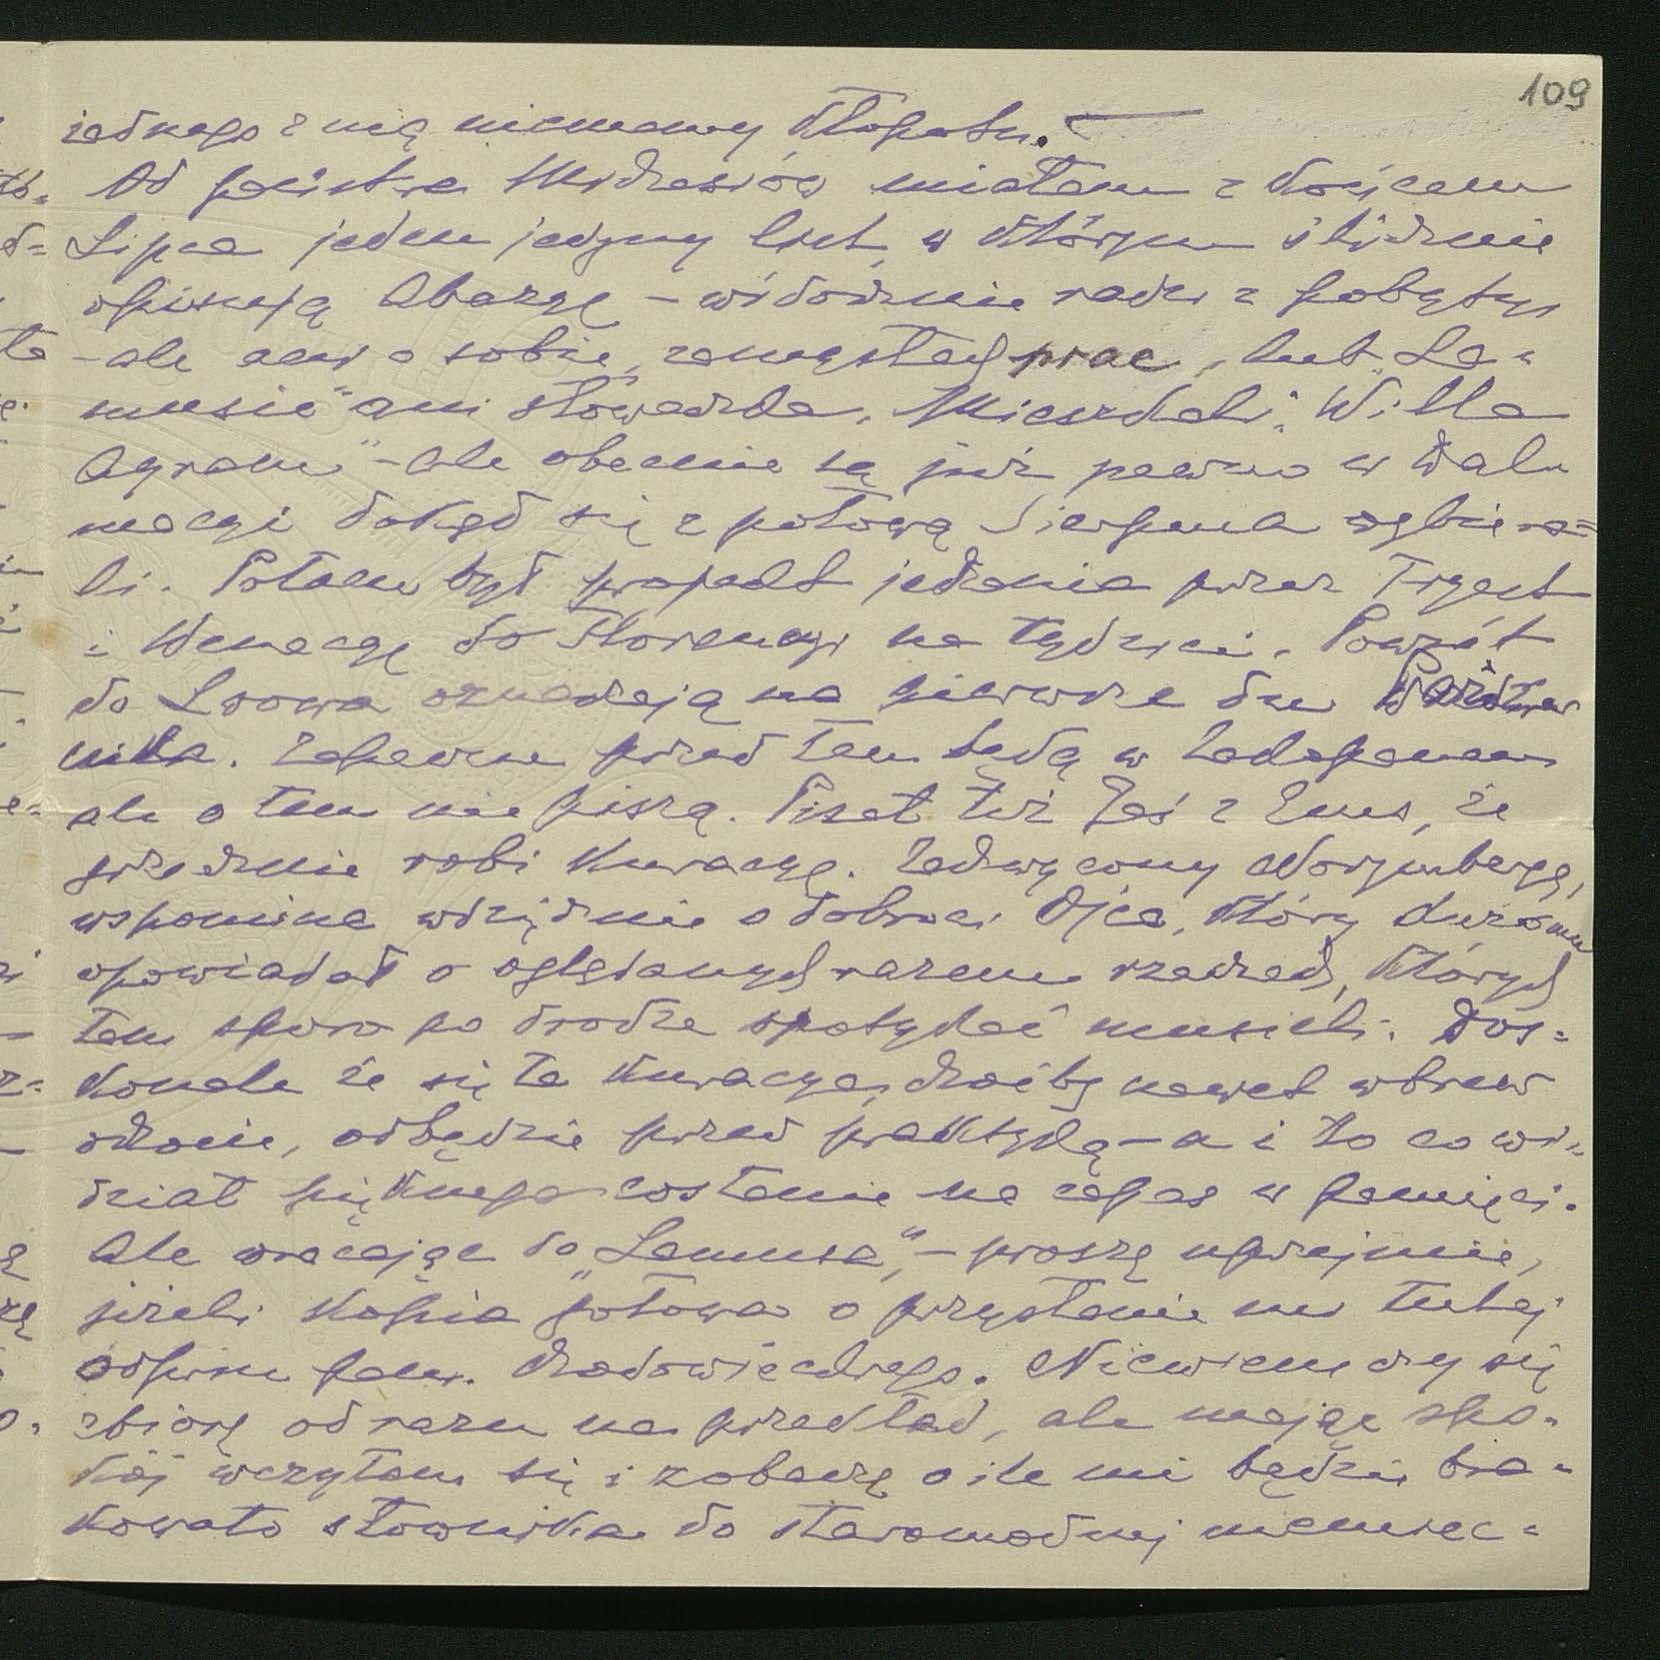 109
żadnego z nią niemamy kłopotu.
Od państwa Mędrzeciów miałam z końcem
Lipca jeden jedyny list, w którym ślicznie
opisują Abazyę – widocznie radzi z pobytu
– ale ani o sobie, zamysłach prac, lub „La=
musie" ani słóweczka. Mieszkali „Willa
Agram" – ale obecnie są już pewno w Dal=
macyi dokąd się z połową Sierpnia wybiera=
li. Potem był projekt jechania przez Tryest
i Wenecyę do Florencyi na tydzień. Powrót
do Lwowa oznaczają na pierwsze dni Paździer
nika. Zapewne przed tem będą w Zakopanem
ale o tem nie piszą. Pisał też z Ems, że
grzecznie robi kuracyę. Zachwycony Norymbergą,
wspomina wdzięcznie o dobroci Ojca, który dużo mu
opowiadał o oglądanych razem rzeczach, których
tam sporo po drodze spotykać musieli. Dos=
konale że się ta kuracya, choćby nawet wbrew
ochocie, odbędzie przed praktyką – a i to co wi=
dział pięknego zostanie na zapas w pamięci.
Ale wracając do „Lamusa", – proszę uprzejmie,
jeżeli kopia gotowa o przysłanie mi tutaj
odpisu pam. Chodowieckiego. Niewiem czy się
zbiorę od razu na przekład, ale mając spo=
kój wczytam się i zobaczę o ile mi będzie bra=
kowało słownika do staromodnej niemiec=